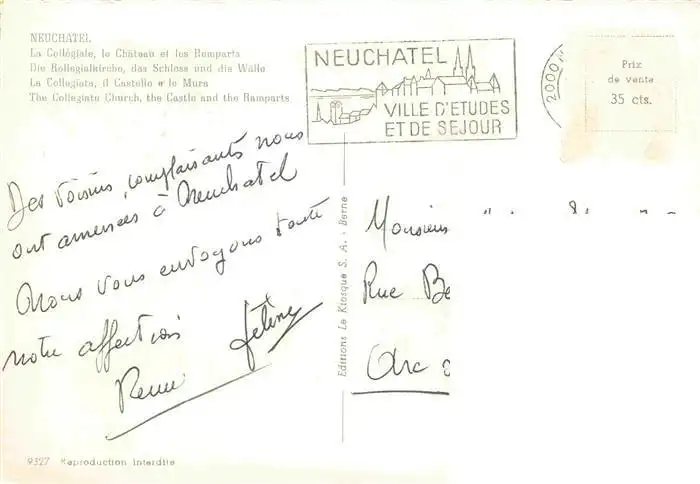 NEUCHATEL
La Collégiale, le Château et les Remparts
Die Kollegialkirche, das Schloss und die Wälle
La Collegiata, il Castello e le Mura
The Collegiate Church, the Castle and the Ramparts
NEUCHATEL
VILLE D'ETUDES
ET DE SEJOUR
2000
Prix
de vente
35 cts.
Des voisins complaisants nous
ont amenées à Neuchatel
Nous vous envoyons toute
notre affection
Editions Le Kiosque S. A. - Berne
Monsieur
Rue Be
Arc
9327 Reproduction interdite